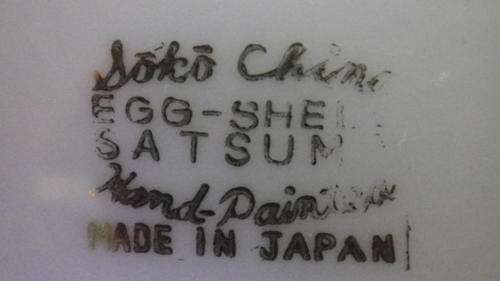 Sōkō China
EGG-SHELL
SATSUMA
Hand-Painted
MADE IN JAPAN